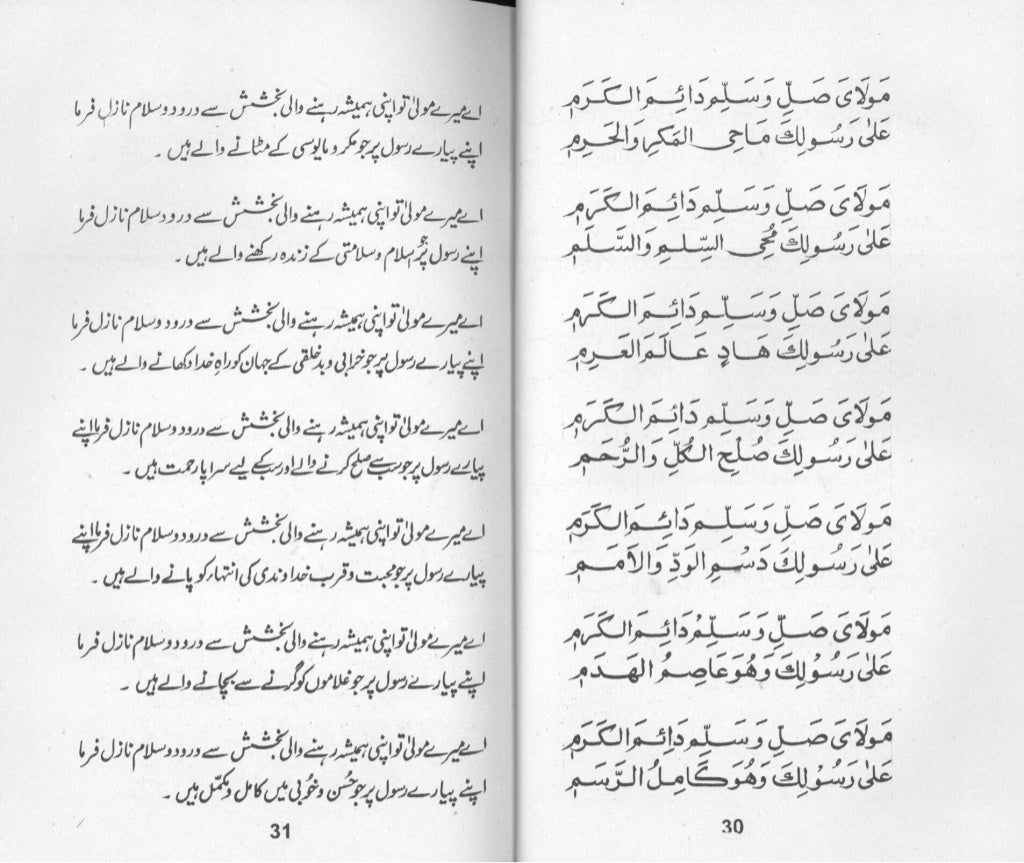 مَولَایَ صَلِّ وَسَلِّم دَائِمَ الکَرَمِ
عَلٰی رَسُولِكَ مَاحِی المَکرِ وَالحَرِمِ
مَولَایَ صَلِّ وَسَلِّم دَائِمَ الکَرَمِ
عَلٰی رَسُولِكَ مُحیِ السِّلمِ وَالسَّلَمِ
مَولَایَ صَلِّ وَسَلِّم دَائِمَ الکَرَمِ
عَلٰی رَسُولِكَ هَادٍ عَالَمَ العَرِمِ
مَولَایَ صَلِّ وَسَلِّم دَائِمَ الکَرَمِ
عَلٰی رَسُولِكَ صُلْحِ الکُلِّ وَالرُّحَمِ
مَولَایَ صَلِّ وَسَلِّم دَائِمَ الکَرَمِ
عَلٰی رَسُولِكَ دَسْمِ الوَدِّ وَالاَمَمِ
مَولَایَ صَلِّ وَسَلِّمْ دَائِمَ الکَرَمِ
عَلٰی رَسُوْلِكَ وَهُوَ عَاصِمُ الهَدَمِ
مَولَایَ صَلِّ وَسَلِّم دَائِمَ الکَرَمِ
عَلٰی رَسُوْلِكَ وَهُوَ کَامِلُ الرَّسَمِ
30
اے میرے مولیٰ تو اپنی ہمیشہ رہنے والی بخشش سے درود و سلام نازل فرما
اپنے پیارے رسول پر جو مکر و مایوسی کے مٹانے والے ہیں ۔
اے میرے مولیٰ تو اپنی ہمیشہ رہنے والی بخشش سے درود و سلام نازل فرما
اپنے رسول پر جو اسلام و سلامتی کے زندہ رکھنے والے ہیں ۔
اے میرے مولیٰ تو اپنی ہمیشہ رہنے والی بخشش سے درود و سلام نازل فرما
اپنے پیارے رسول پر جو خرابی و بدخلقی کے جہان کو راہِ خدا دکھانے والے ہیں ۔
اے میرے مولیٰ تو اپنی ہمیشہ رہنے والی بخشش سے درود و سلام نازل فرما اپنے
پیارے رسول پر جو سب سے صلح کرنے والے اور سب کے لیے سراپا رحمت ہیں ۔
اے میرے مولیٰ تو اپنی ہمیشہ رہنے والی بخشش سے درود و سلام نازل فرما اپنے
پیارے رسول پر جو محبت و قرب خداوندی کی انتہاء کو پانے والے ہیں ۔
اے میرے مولیٰ تو اپنی ہمیشہ رہنے والی بخشش سے درود و سلام نازل فرما
اپنے پیارے رسول پر جو غلاموں کو گرنے سے بچانے والے ہیں ۔
اے میرے مولیٰ تو اپنی ہمیشہ رہنے والی بخشش سے درود و سلام نازل فرما
اپنے پیارے رسول پر جو حُسن و خُوبی میں کامل و مکمّل ہیں ۔
31